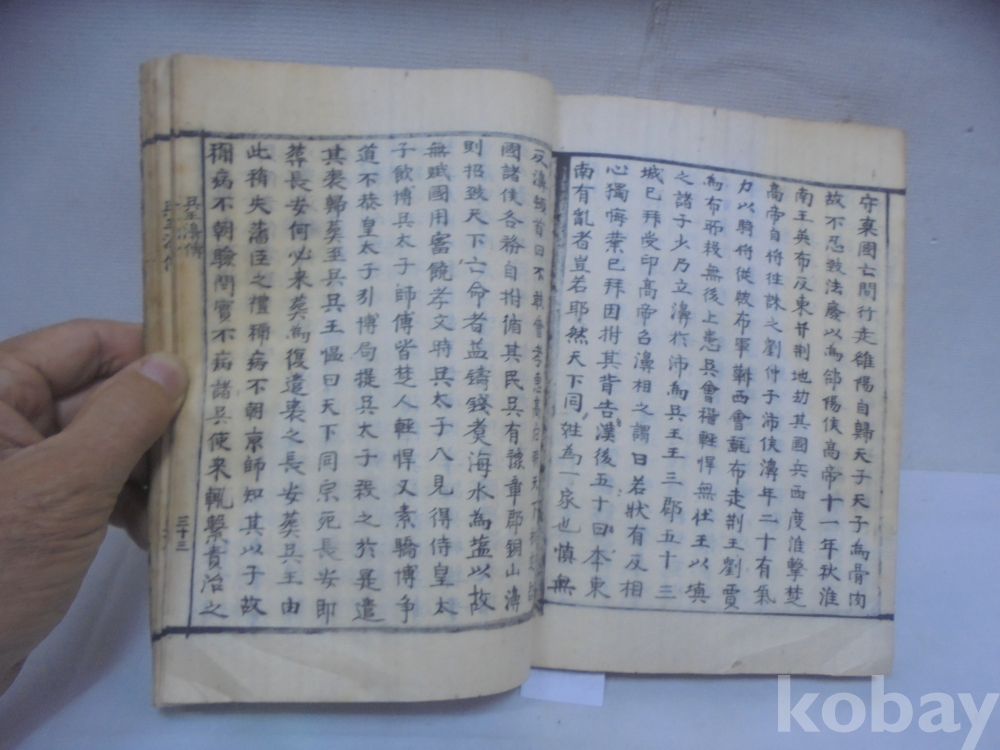 守棄國亡間行走雒陽自歸天子天子為骨肉
故不忍致法廢以為郃陽侯高帝十一年秋淮
南王英布反東并荆地劫其國兵西度淮擊楚
高帝自將往誅之劉仲子沛侯濞年二十有氣
力以騎將從破布軍蘄西會甀布走荆王劉賈
為布所殺無後上患吳會稽輕悍無壯王以填
之諸子少乃立濞於沛為吳王王三郡五十三
城已拜受印高帝召濞相之謂曰若狀有反相
心獨悔業已拜因拊其背告漢後五十曰本東
南有亂者豈若耶然天下同姓為一家也慎無
反濞頓首曰不敢會孝惠高后時天下
國諸侯各務自拊循其民吳有豫章郡銅山濞
則招致天下亡命者益鑄錢煑海水為塩以故
無賦國用富饒孝文時吳太子入見得侍皇太
子飲博吳太子師傅皆楚人輕悍又素驕博争
道不恭皇太子引博局提吳太子殺之於是遣
其喪歸葬至吳吳王慍曰天下同宗死長安即
葬長安何必来葬為復遣喪之長安葬吳王由
此稍失藩臣之禮稱病不朝京師知其以子故
稱病不朝驗問實不病諸吳使来輒繫責治之
吳王濞傳
三十三
kobay